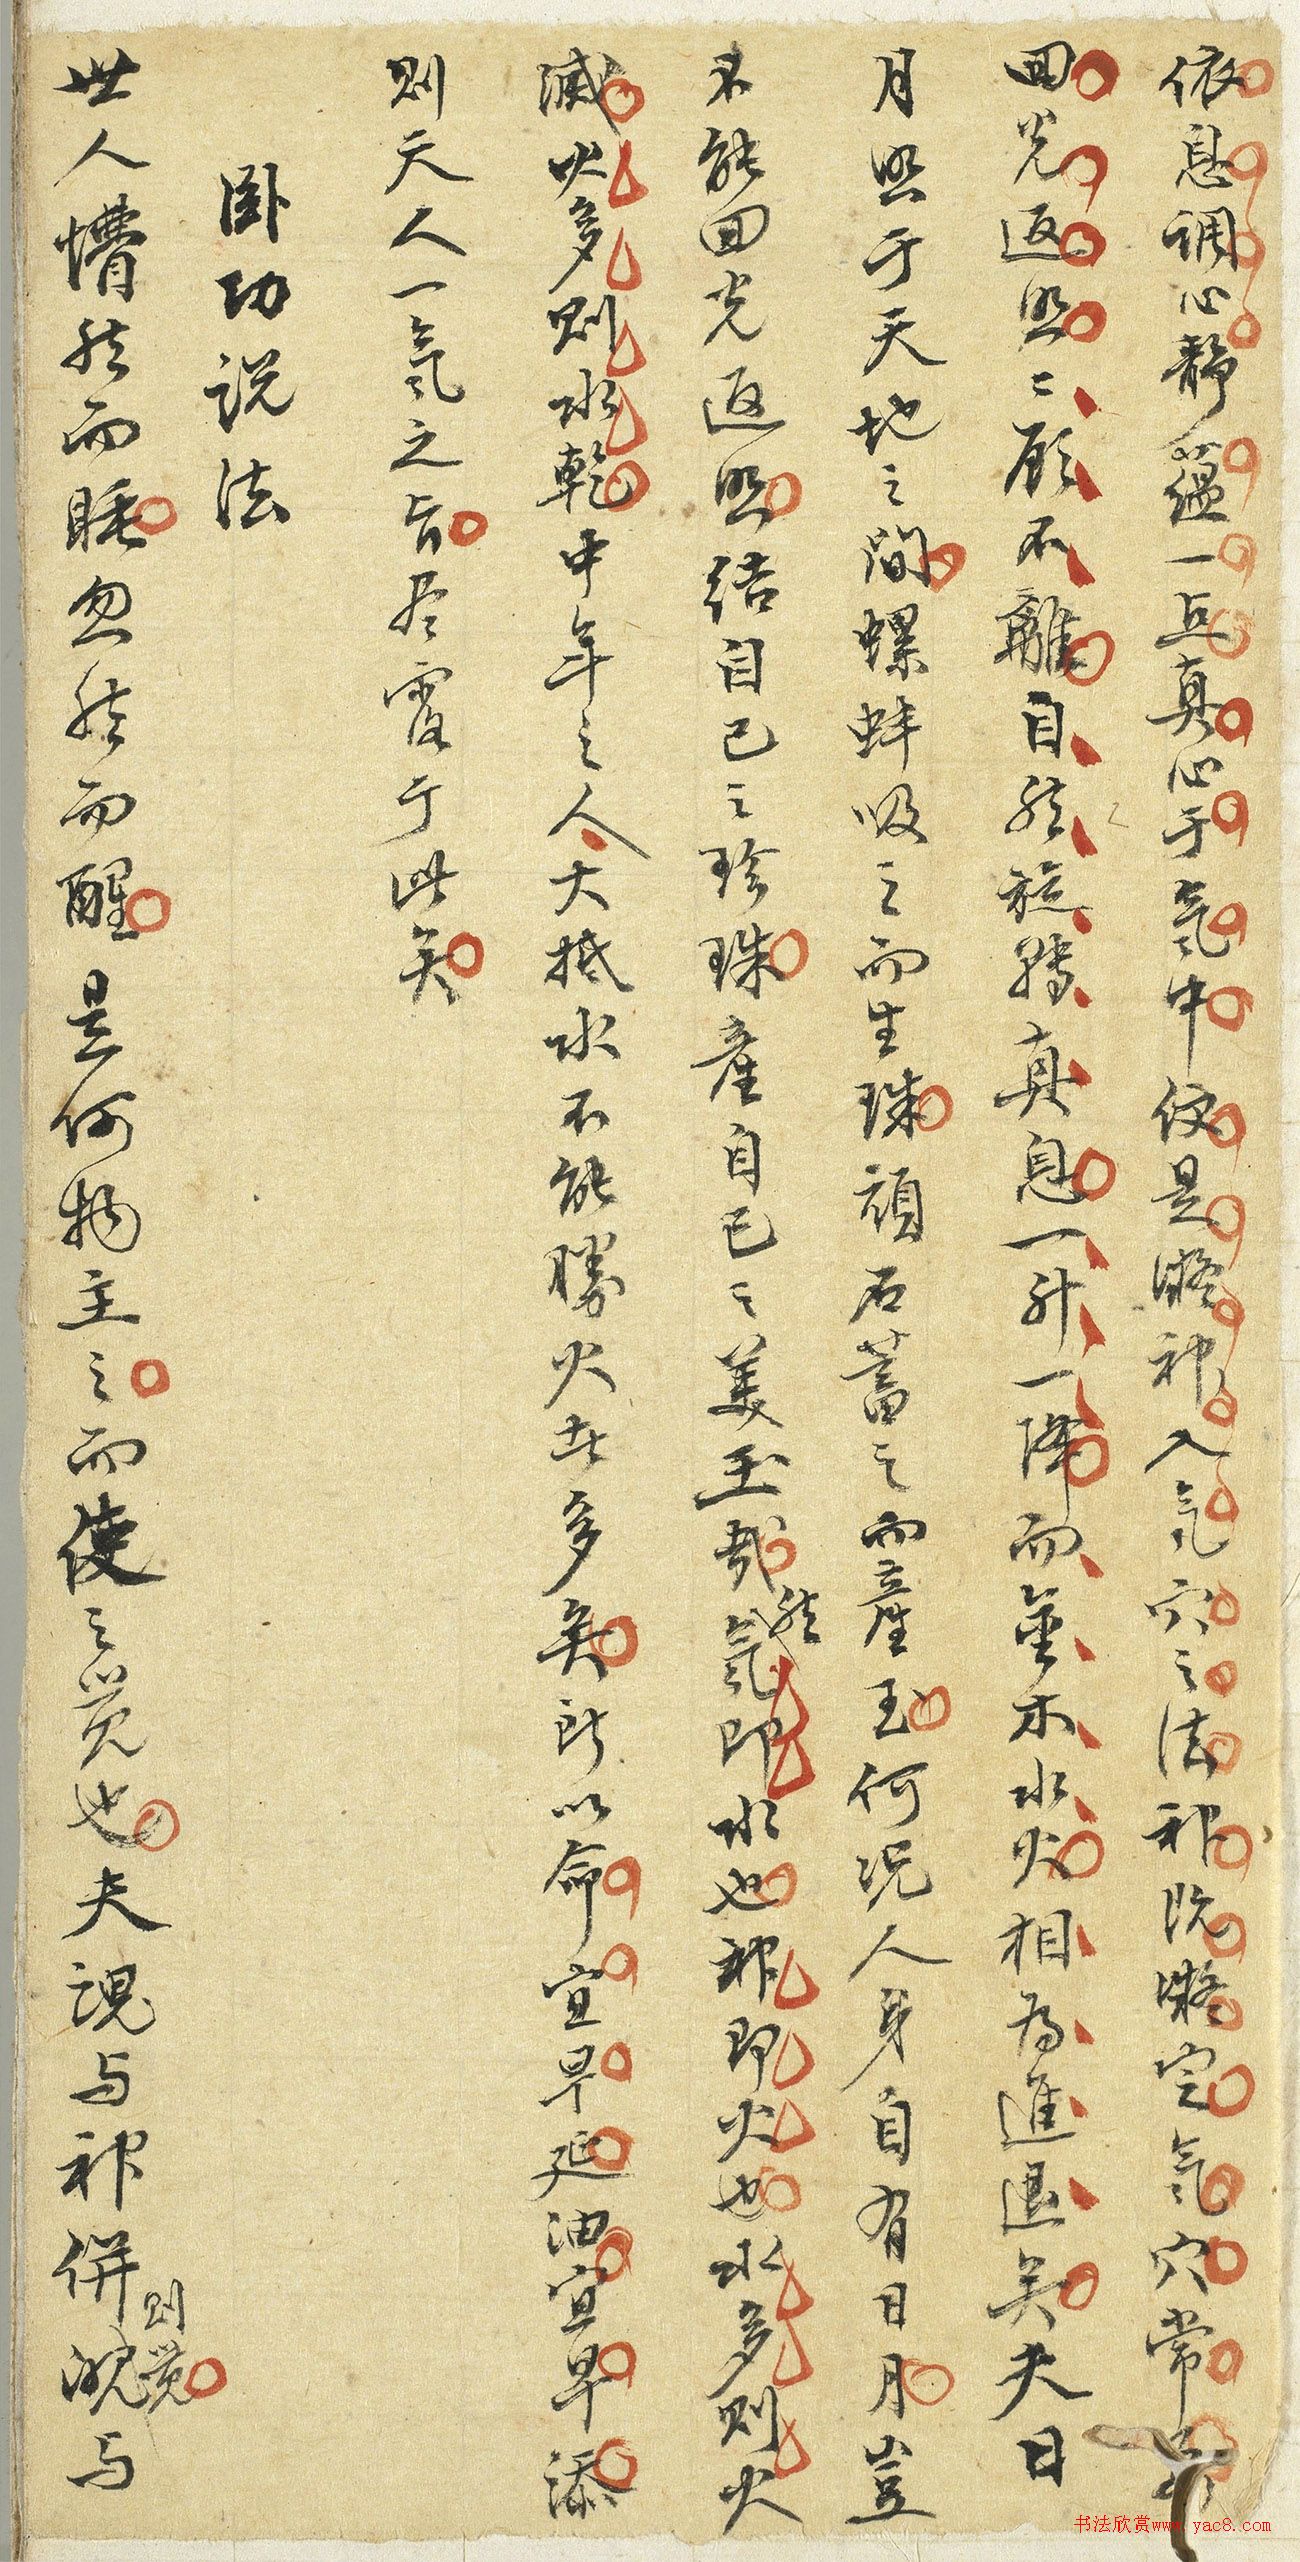 依息调心静蕴一点真心于氣中便是凝神入氣穴之法神既凝定氣穴常要
回光返照二顧不離自然旋转真息一升一降而金木水火相为進退矣夫日
月照于天地之間螺蚌吸之而生珠頑石蓄之而產玉何况人身自有日月豈
不能回光返照结自己之珍珠產自己之美玉哉然氣即水也神即火也水多則火
滅火多則水乾中年之人大抵水不能勝火者多矣所以命宜早延油宜早添
則天人一氣之旨尽露于此矣
卧功說法
世人懵然而睡忽然而醒是何物主之而使之觉也夫魂与神併則觉魄与
书法欣赏www.yac8.com